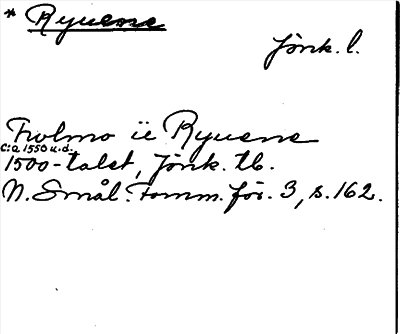 * Ryuene
Jönk. l.
Twlmo ie Ryuene
c:a 1550 u.d.
1500-talet, Jönk. tb.
N. Smål. Fornm. för. 3, s. 162.